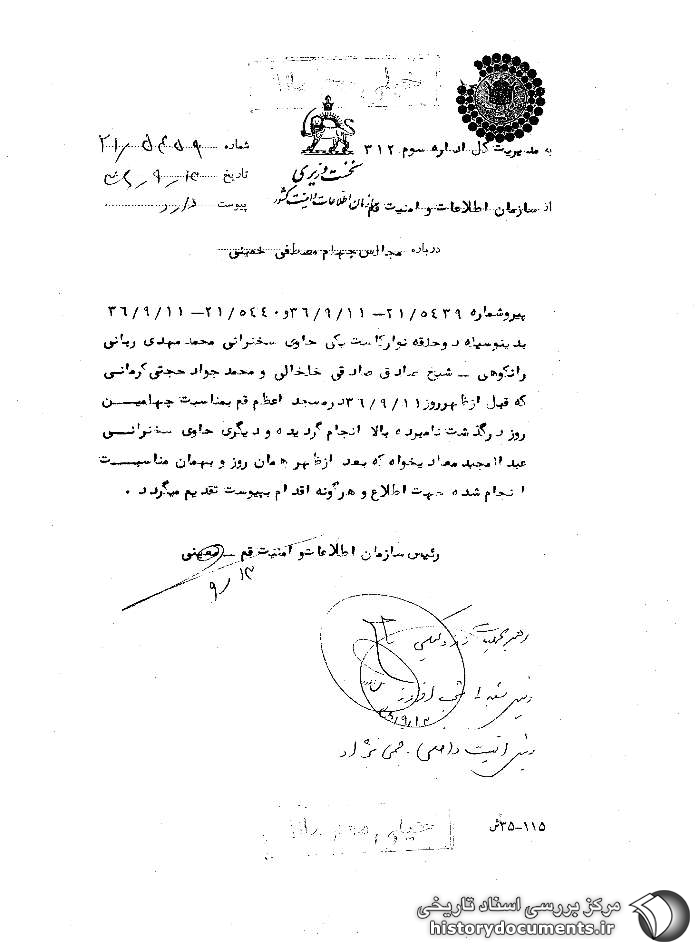 خیلی محرمانه
به مدیریت کل اداره سوم ۳۱۲
شماره ۲۱/۵۴۵۹
نخست وزیری
تاریخ ۳۶/۹/۱۳
از سازمان اطلاعات و امنیت قم
سازمان اطلاعات و امنیت کشور
پیوست دارد
درباره مجالس چهلم مصطفی خمینی
پیروشماره ۲۱/۵٤۳۹–۳۶/۹/۱۱ و ۲۱/۵٤٤۰–۳۶/۹/۱۱
بدینوسیله دوحلقه نوارکاست یکی حاوی سخنرانی محمد مهدی ربانی
رانکوهی – شیخ صادق صادقی خلخالی و محمد جواد حجتی کرمانی
که قبل ازظهرروز ۳۶/۹/۱۱درمسجد اعظم قم بمناسبت چهلمین
روز درگذشت نامبرده بالا انجام گردیده و دیگری حاوی سخنرانی
عبدالمجید معادیخواه که بعد ازظهر همان روز و بهمان مناسبت
انجام شده جهت اطلاع و هرگونه اقدام بپیوست تقدیم میگردد .
رئیس سازمان اطلاعات و امنیت قم – معینی
۹/۱۳
رهبر عملیات
رئیس
۳۶/۹/۱۳
رئیس امنیت داخلی
۱۱۵–۳۵ش
خیلی محرمانه
مرکز بررسی اسناد تاریخی
historydocuments.ir